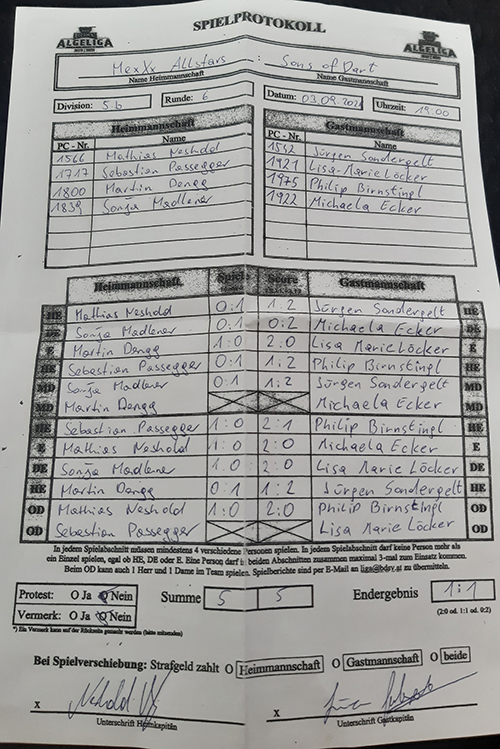 SPIELPROTOKOLL
ALGELIGA
ALGELIGA
MexXx Allstars : Sons of Dart
Name Heimmannschaft Name Gastmannschaft
Division: 5b Runde: 6 Datum: 03.09.2024 Uhrzeit: 19:00
Heimmannschaft Gastmannschaft
PC - Nr. Name PC - Nr. Name
1566 Mathias Neshold 1552 Jürgen Sondergelt
1717 Sebastian Passegger 1921 Lisa-Marie Löcker
1800 Martin Dengg 1975 Philip Birnstingl
1839 Sonja Madlener 1922 Michaela Ecker
Heimmannschaft Spiele Score Gastmannschaft
HE Mathias Neshold 0:1 1:2 Jürgen Sondergelt HE
DE Sonja Madlener 0:1 0:2 Michaela Ecker DE
E Martin Dengg 1:0 2:0 Lisa Marie Löcker E
HE Sebastian Passegger 0:1 1:2 Philip Birnstingl HE
MD Sonja Madlener 0:1 1:2 Jürgen Sondergelt MD
MD Martin Dengg Michaela Ecker MD
HE Sebastian Passegger 1:0 2:1 Philip Birnstingl HE
E Mathias Neshold 1:0 2:0 Michaela Ecker E
DE Sonja Madlener 1:0 2:0 Lisa Marie Löcker DE
HE Martin Dengg 0:1 1:2 Jürgen Sondergelt HE
OD Mathias Neshold 1:0 2:0 Philip Birnstingl OD
OD Sebastian Passegger Lisa Marie Löcker OD
In jedem Spielabschnitt müssen mindestens 4 verschiedene Personen spielen. In jedem Spielabschnitt darf keine Person mehr als
ein Einzel spielen, egal ob HE, DE oder E. Eine Person darf in beiden Abschnitten zusammen maximal 3-mal zum Einsatz kommen.
Beim OD kann auch 1 Herr und 1 Dame im Team spielen. Spielberichte sind per E-Mail an liga@bdsv.at zu übermitteln.
Protest: O Ja O Nein Summe 5 5 Endergebnis 1:1
Vermerk: O Ja O Nein (2:0 od. 1:1 od. 0:2)
*) Ein Vermerk kann auf der Rückseite gemacht werden (bitte mitsenden)
Bei Spielverschiebung: Strafgeld zahlt O Heimmannschaft O Gastmannschaft O beide
x x
Unterschrift Heimkapitän Unterschrift Gastkapitän